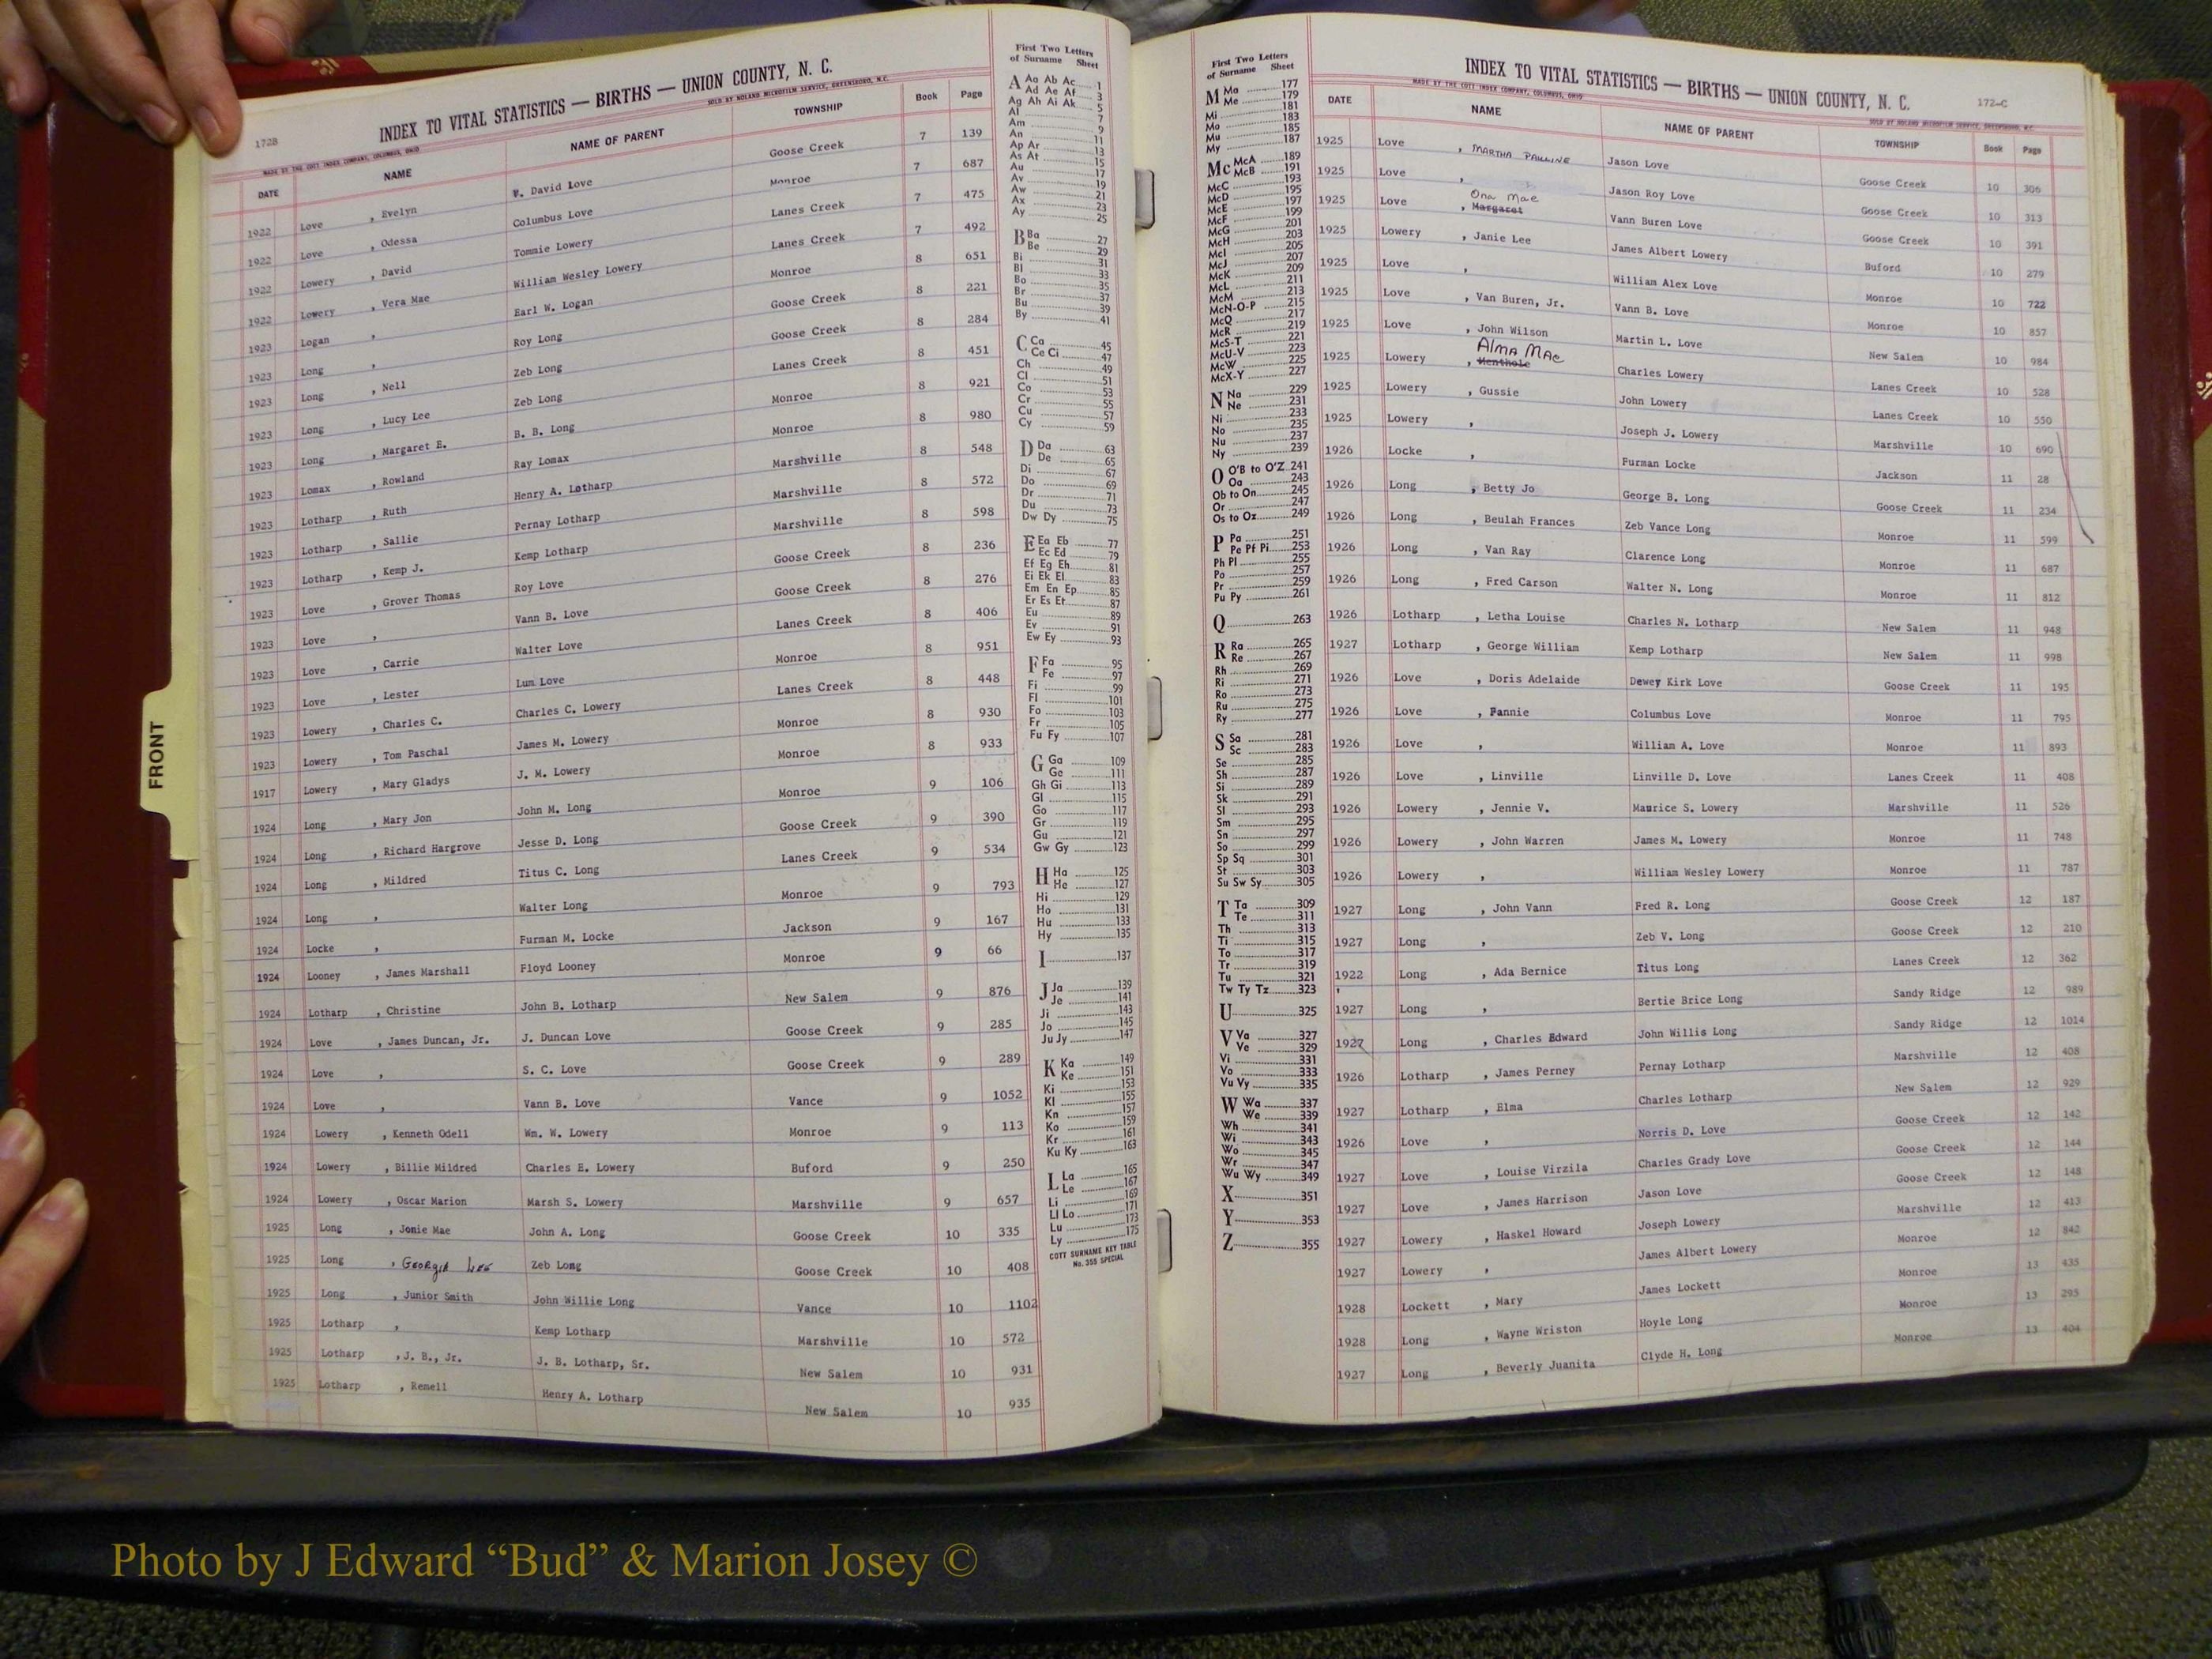 172B
INDEX TO VITAL STATISTICS — BIRTHS — UNION COUNTY, N. C.
MADE BY THE COTT INDEX COMPANY, COLUMBUS, OHIO SOLD BY NOLAND MICROFILM SERVICE, GREENSBORO, N.C.
DATE NAME NAME OF PARENT TOWNSHIP Book Page
1922 Love , Evelyn David Love Goose Creek 7 139
1922 Love , Odessa Columbus Love Monroe 7 687
1922 Lowery , David Tommie Lowery Lanes Creek 7 475
1922 Lowery , Vera Mae William Wesley Lowery Lanes Creek 7 492
1923 Logan , Earl W. Logan Monroe 8 651
1923 Long , Roy Long Goose Creek 8 221
1923 Long , Nell Zeb Long Goose Creek 8 284
1923 Long , Lucy Lee Zeb Long Lanes Creek 8 451
1923 Long , Margaret E. B. B. Long Monroe 8 921
1923 Lomax , Rowland Ray Lomax Monroe 8 980
1923 Lotharp , Ruth Henry A. Lotharp Marshville 8 548
1923 Lotharp , Sallie Pernay Lotharp Marshville 8 572
1923 Lotharp , Kemp J. Kemp Lotharp Marshville 8 598
1923 Love , Grover Thomas Roy Love Goose Creek 8 236
1923 Love , Vann B. Love Goose Creek 8 276
1923 Love , Carrie Walter Love Lanes Creek 8 406
1923 Love , Lester Lum Love Monroe 8 951
1923 Lowery , Charles C. Charles C. Lowery Lanes Creek 8 448
1923 Lowery , Tom Paschal James M. Lowery Monroe 8 930
1917 Lowery , Mary Gladys J. M. Lowery Monroe 8 933
1924 Long , Mary Jon John M. Long Monroe 9 106
1924 Long , Richard Hargrove Jesse D. Long Goose Creek 9 390
1924 Long , Mildred Titus C. Long Lanes Creek 9 534
1924 Long , Walter Long Monroe 9 793
1924 Locke , Furman M. Locke Jackson 9 167
1924 Looney , James Marshall Floyd Looney Monroe 9 66
1924 Lotharp , Christine John B. Lotharp New Salem 9 876
1924 Love , James Duncan, Jr. J. Duncan Love Goose Creek 9 285
1924 Love , S. C. Love Goose Creek 9 289
1924 Love , Vann B. Love Vance 9 1052
1924 Lowery , Kenneth Odell Wm. W. Lowery Monroe 9 113
1924 Lowery , Billie Mildred Charles E. Lowery Buford 9 250
1924 Lowery , Oscar Marion Marsh S. Lowery Marshville 9 657
1925 Long , Jonie Mae John A. Long Goose Creek 10 335
1925 Long , Georgia Lee Zeb Long Goose Creek 10 408
1925 Long , Junior Smith John Willie Long Vance 10 1102
1925 Lotharp , Kemp Lotharp Marshville 10 572
1925 Lotharp , J. B., Jr. J. B. Lotharp, Sr. New Salem 10 931
1925 Lotharp , Remell Henry A. Lotharp New Salem 10 935
First Two Letters
of Surname Sheet
A Aa Ab Ac 1
Ad Ae Af 3
Ag Ah Ai Ak 5
Al 7
Am 9
An 11
Ap Ar 13
As At 15
Au 17
Av 19
Aw 21
Ax 23
Ay 25
B Ba 27
Be 29
Bi 31
Bl 33
Bo 35
Br 37
Bu 39
By 41
C Ca 45
Ce Ci 47
Ch 49
Cl 51
Co 53
Cr 55
Cu 57
Cy 59
D Da 63
De 65
Di 67
Do 69
Dr 71
Du 73
Dw Dy 75
E Ea Eb 77
Ec Ed 79
Ef Eg Eh 81
Ei Ek El 83
Em En Ep 85
Er Es Et 87
Eu 89
Ev 91
Ew Ey 93
F Fa 95
Fe 97
Fi 99
Fl 101
Fo 103
Fr 105
Fu Fy 107
G Ga 109
Ge 111
Gh Gi 113
Gl 115
Go 117
Gr 119
Gu 121
Gw Gy 123
H Ha 125
He 127
Hi 129
Ho 131
Hu 133
Hy 135
I 137
J Ja 139
Je 141
Ji 143
Jo 145
Ju Jy 147
K Ka 149
Ke 151
Ki 153
Kl 155
Kn 157
Ko 159
Kr 161
Ku Ky 163
L La 165
Le 167
Li 169
Ll Lo 171
Lu 173
Ly 175
COTT SURNAME KEY TABLE
No. 355 SPECIAL
First Two Letters
of Surname Sheet
M Ma 177
Me 179
Mi 181
Mo 183
Mu 185
My 187
Mc McA 189
McB 191
McC 193
McD 195
McE 197
McF 199
McG 201
McH 203
McI 205
McJ 207
McK 209
McL 211
McM 213
McN-O-P 215
McQ 217
McR 219
McS-T 221
McU-V 223
McW 225
McX-Y 227
N Na 229
Ne 231
Ni 233
No 235
Nu 237
Ny 239
O O'B to O'Z 241
Oa 243
Ob to On 245
Or 247
Os to Oz 249
P Pa 251
Pe Pf Pi 253
Ph Pl 255
Po 257
Pr 259
Pu Py 261
Q 263
R Ra 265
Re 267
Rh 269
Ri 271
Ro 273
Ru 275
Ry 277
S Sa 281
Sc 283
Se 285
Sh 287
Si 289
Sk 291
Sl 293
Sm 295
Sn 297
So 299
Sp Sq 301
St 303
Su Sw Sy 305
T Ta 309
Te 311
Th 313
Ti 315
To 317
Tr 319
Tu 321
Tw Ty Tz 323
U 325
V Va 327
Ve 329
Vi 331
Vo 333
Vu Vy 335
W Wa 337
We 339
Wh 341
Wi 343
Wo 345
Wr 347
Wu Wy 349
X 351
Y 353
Z 355
INDEX TO VITAL STATISTICS — BIRTHS — UNION COUNTY, N. C. 172-C
MADE BY THE COTT INDEX COMPANY, COLUMBUS, OHIO SOLD BY NOLAND MICROFILM SERVICE, GREENSBORO, N.C.
DATE NAME NAME OF PARENT TOWNSHIP Book Page
1925 Love , MARTHA PAULINE Jason Love Goose Creek 10 306
1925 Love , Jason Roy Love Goose Creek 10 313
1925 Love , Margaret Ona Mae Vann Buren Love Goose Creek 10 391
1925 Lowery , Janie Lee James Albert Lowery Buford 10 279
1925 Love , William Alex Love Monroe 10 722
1925 Love , Van Buren, Jr. Vann B. Love Monroe 10 857
1925 Love , John Wilson Martin L. Love New Salem 10 984
1925 Lowery , Menthole Alma Mae Charles Lowery Lanes Creek 10 528
1925 Lowery , Gussie John Lowery Lanes Creek 10 550
1925 Lowery , Joseph J. Lowery Marshville 10 690
1926 Locke , Furman Locke Jackson 11 28
1926 Long , Betty Jo George B. Long Goose Creek 11 234
1926 Long , Beulah Frances Zeb Vance Long Monroe 11 599
1926 Long , Van Ray Clarence Long Monroe 11 687
1926 Long , Fred Carson Walter N. Long Monroe 11 812
1926 Lotharp , Letha Louise Charles N. Lotharp New Salem 11 948
1927 Lotharp , George William Kemp Lotharp New Salem 11 998
1926 Love , Doris Adelaide Dewey Kirk Love Goose Creek 11 195
1926 Love , Fannie Columbus Love Monroe 11 795
1926 Love , William A. Love Monroe 11 893
1926 Love , Linville Linville D. Love Lanes Creek 11 408
1926 Lowery , Jennie V. Maurice S. Lowery Marshville 11 526
1926 Lowery , John Warren James M. Lowery Monroe 11 748
1926 Lowery , William Wesley Lowery Monroe 11 787
1927 Long , John Vann Fred R. Long Goose Creek 12 187
1927 Long , Zeb V. Long Goose Creek 12 210
1922 Long , Ada Bernice Titus Long Lanes Creek 12 362
1927 Long , Bertie Brice Long Sandy Ridge 12 989
1927 Long , Charles Edward John Willis Long Sandy Ridge 12 1014
1926 Lotharp , James Perney Pernay Lotharp Marshville 12 408
1927 Lotharp , Elma Charles Lotharp New Salem 12 929
1926 Love , Norris D. Love Goose Creek 12 142
1927 Love , Louise Virzila Charles Grady Love Goose Creek 12 144
1927 Love , James Harrison Jason Love Goose Creek 12 148
1927 Lowery , Haskel Howard Joseph Lowery Marshville 12 413
1927 Lowery , James Albert Lowery Monroe 12 842
1928 Lockett , Mary James Lockett Monroe 13 435
1928 Long , Wayne Wriston Hoyle Long Monroe 13 295
1927 Long , Beverly Juanita Clyde H. Long Monroe 13 404
FRONT
Photo by J Edward “Bud” & Marion Josey ©